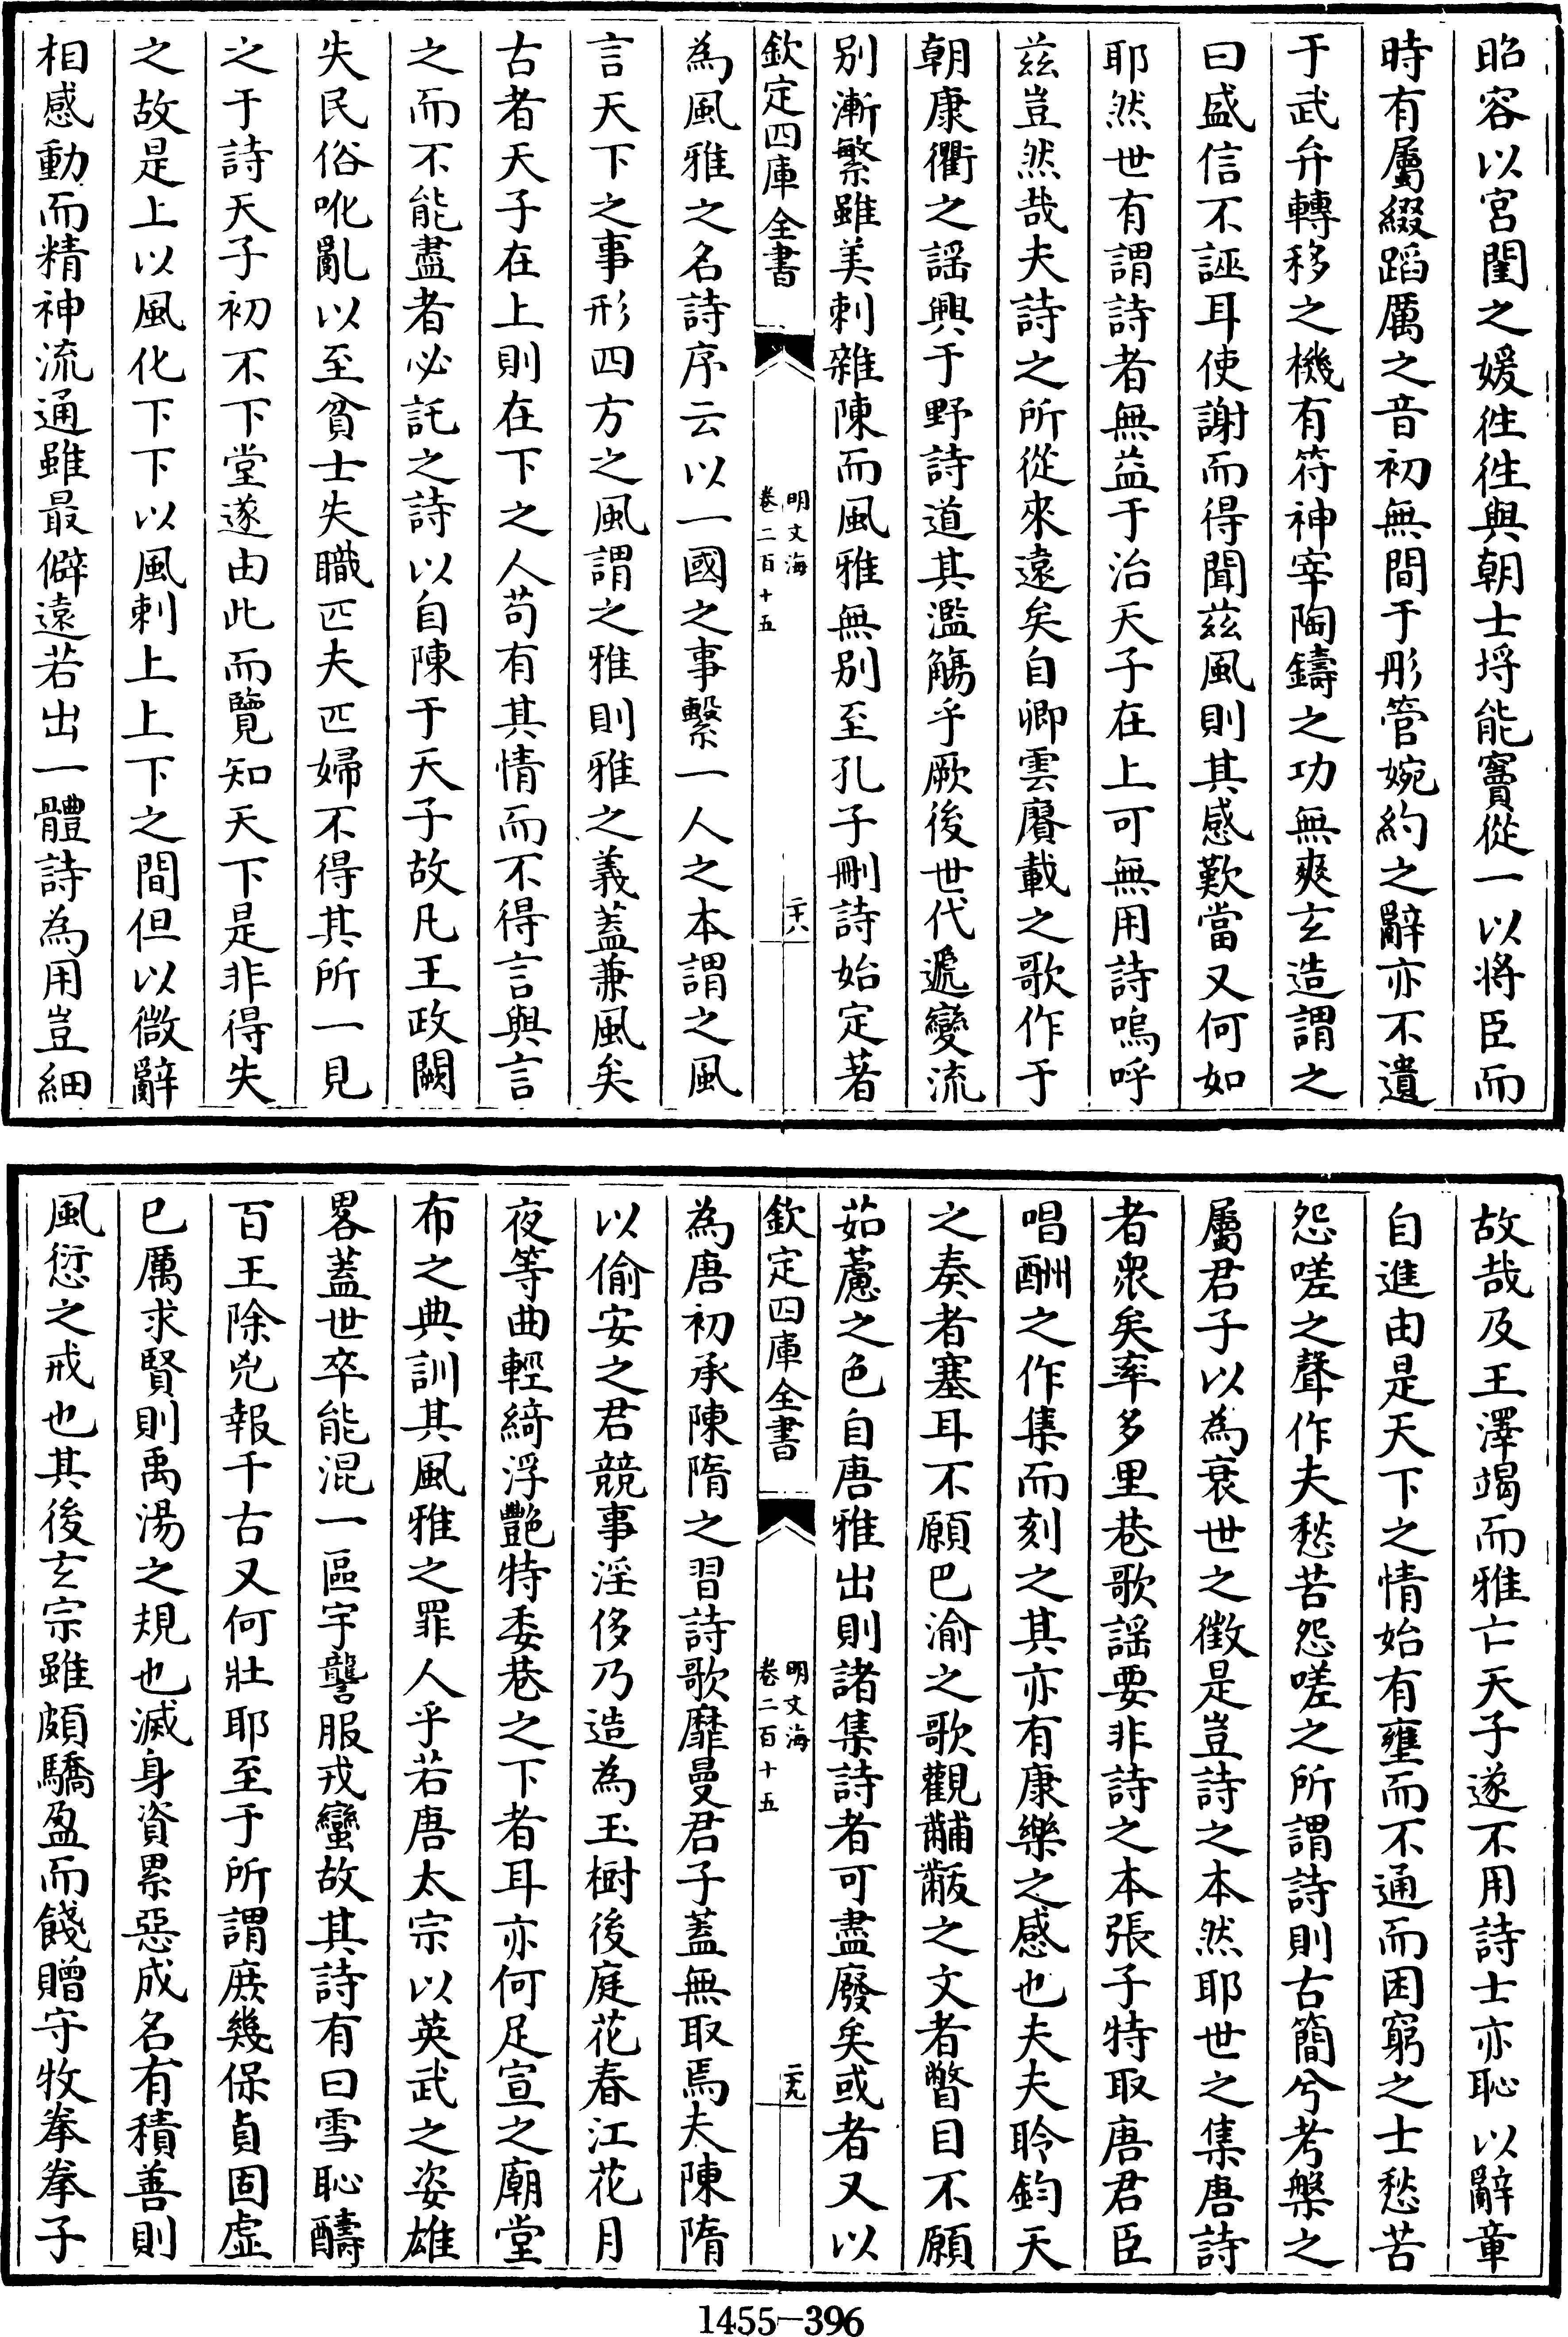 昭容以宮闈之媛徃徃與朝士埒能竇從一以將臣而
時有屬綴蹈厲之音初無間于彤管婉約之辭亦不遺
于武弁轉移之機有符神宰陶鑄之功無爽玄造謂之
曰盛信不誣耳使謝而得聞兹風則其感歎當又何如
耶然世有謂詩者無益于治天子在上可無用詩嗚呼
兹豈然哉夫詩之所從來遠矣自卿雲賡載之歌作于
朝康衢之謡興于野詩道其濫觴乎厥後世代遞變流
别漸繁雖美刺雜陳而風雅無别至孔子刪詩始定著
欽定四庫全書
明文海
卷二百十五
二十八
為風雅之名詩序云以一國之事繫一人之本謂之風
言天下之事形四方之風謂之雅則雅之義蓋兼風矣
古者天子在上則在下之人苟有其情而不得言與言
之而不能盡者必託之詩以自陳于天子故凡王政闕
失民俗吪亂以至貧士失職匹夫匹婦不得其所一見
之于詩天子初不下堂遂由此而覽知天下是非得失
之故是上以風化下下以風刺上上下之間但以微辭
相感動而精神流通雖最僻遠若出一體詩為用豈細
故哉及王澤竭而雅亡天子遂不用詩士亦恥以辭章
自進由是天下之情始有壅而不通而困窮之士愁苦
怨嗟之聲作夫愁苦怨嗟之所謂詩則古簡兮考槃之
屬君子以為衰世之徵是豈詩之本然耶世之集唐詩
者衆矣率多里巷歌謡要非詩之本張子特取唐君臣
唱酬之作集而刻之其亦有康樂之感也夫夫聆鈞天
之奏者塞耳不願巴渝之歌觀黼黻之文者瞥目不願
茹藘之色自唐雅出則諸集詩者可盡廢矣或者又以
欽定四庫全書
明文海
卷二百十五
二十九
為唐初承陳隋之習詩歌靡曼君子蓋無取焉夫陳隋
以偷安之君競事淫侈乃造為玉樹後庭花春江花月
夜等曲輕綺浮艷特委巷之下者耳亦何足宣之廟堂
布之典訓其風雅之罪人乎若唐太宗以英武之姿雄
畧蓋世卒能混一區宇讋服戎蠻故其詩有曰雪恥酬
百王除兇報千古又何壯耶至于所謂庶幾保貞固虛
已厲求賢則禹湯之規也滅身資累惡成名有積善則
風愆之戒也其後玄宗雖頗驕盈而餞贈守牧拳拳子
1455-396